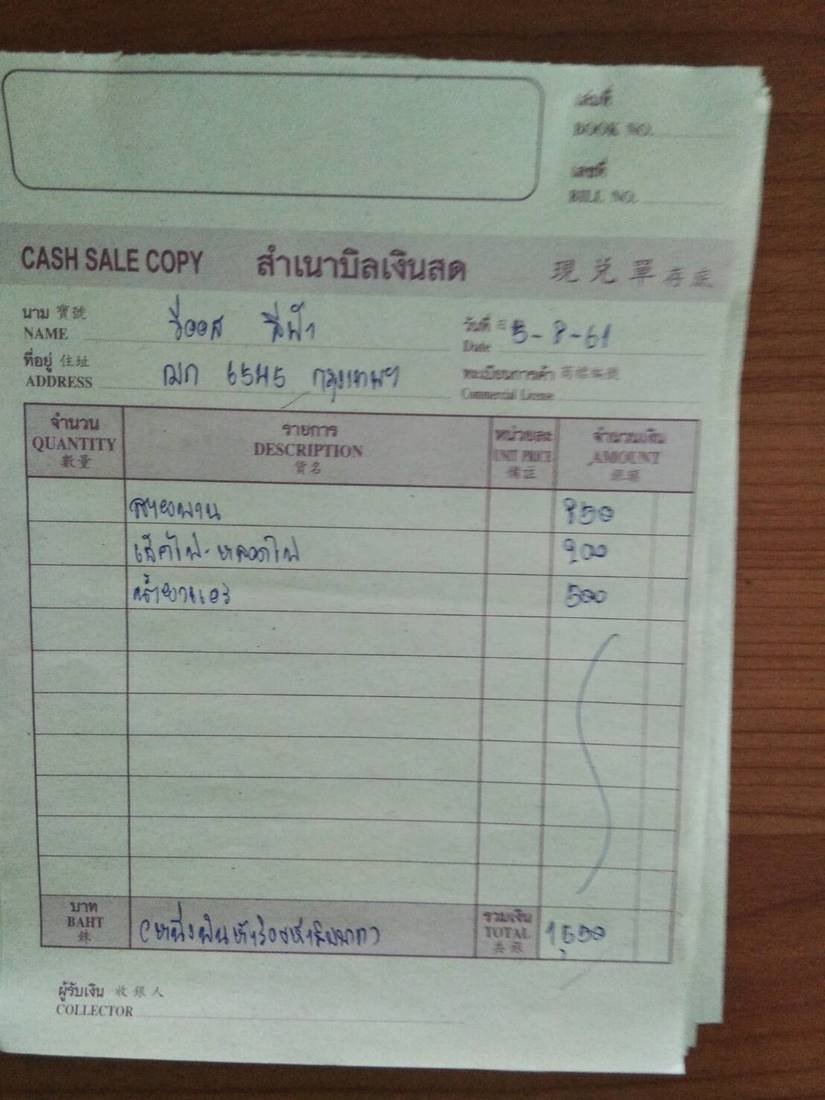 เล่มที่
BOOK NO.
เลขที่
BILL NO.
CASH SALE COPY สำเนาบิลเงินสด 現兌單存底
นาม 寶號
NAME วีออส สีฟ้า
วันที่
Date 5-8-61
ที่อยู่ 住址
ADDRESS ฌก 6545 กรุงเทพฯ
ทะเบียนการค้า
Commercial License
จำนวน รายการ หน่วยละ จำนวนเงิน
QUANTITY DESCRIPTION UNIT PRICE AMOUNT
數量 貨名
สายพาน 850
เช็คไฟ-หลอดไฟ 200
น้ำยาแอร์ 500
บาท รวมเงิน
BAHT (หนึ่งพันหกร้อยห้าสิบบาท) TOTAL 1,550
ผู้รับเงิน 收銀人
COLLECTOR